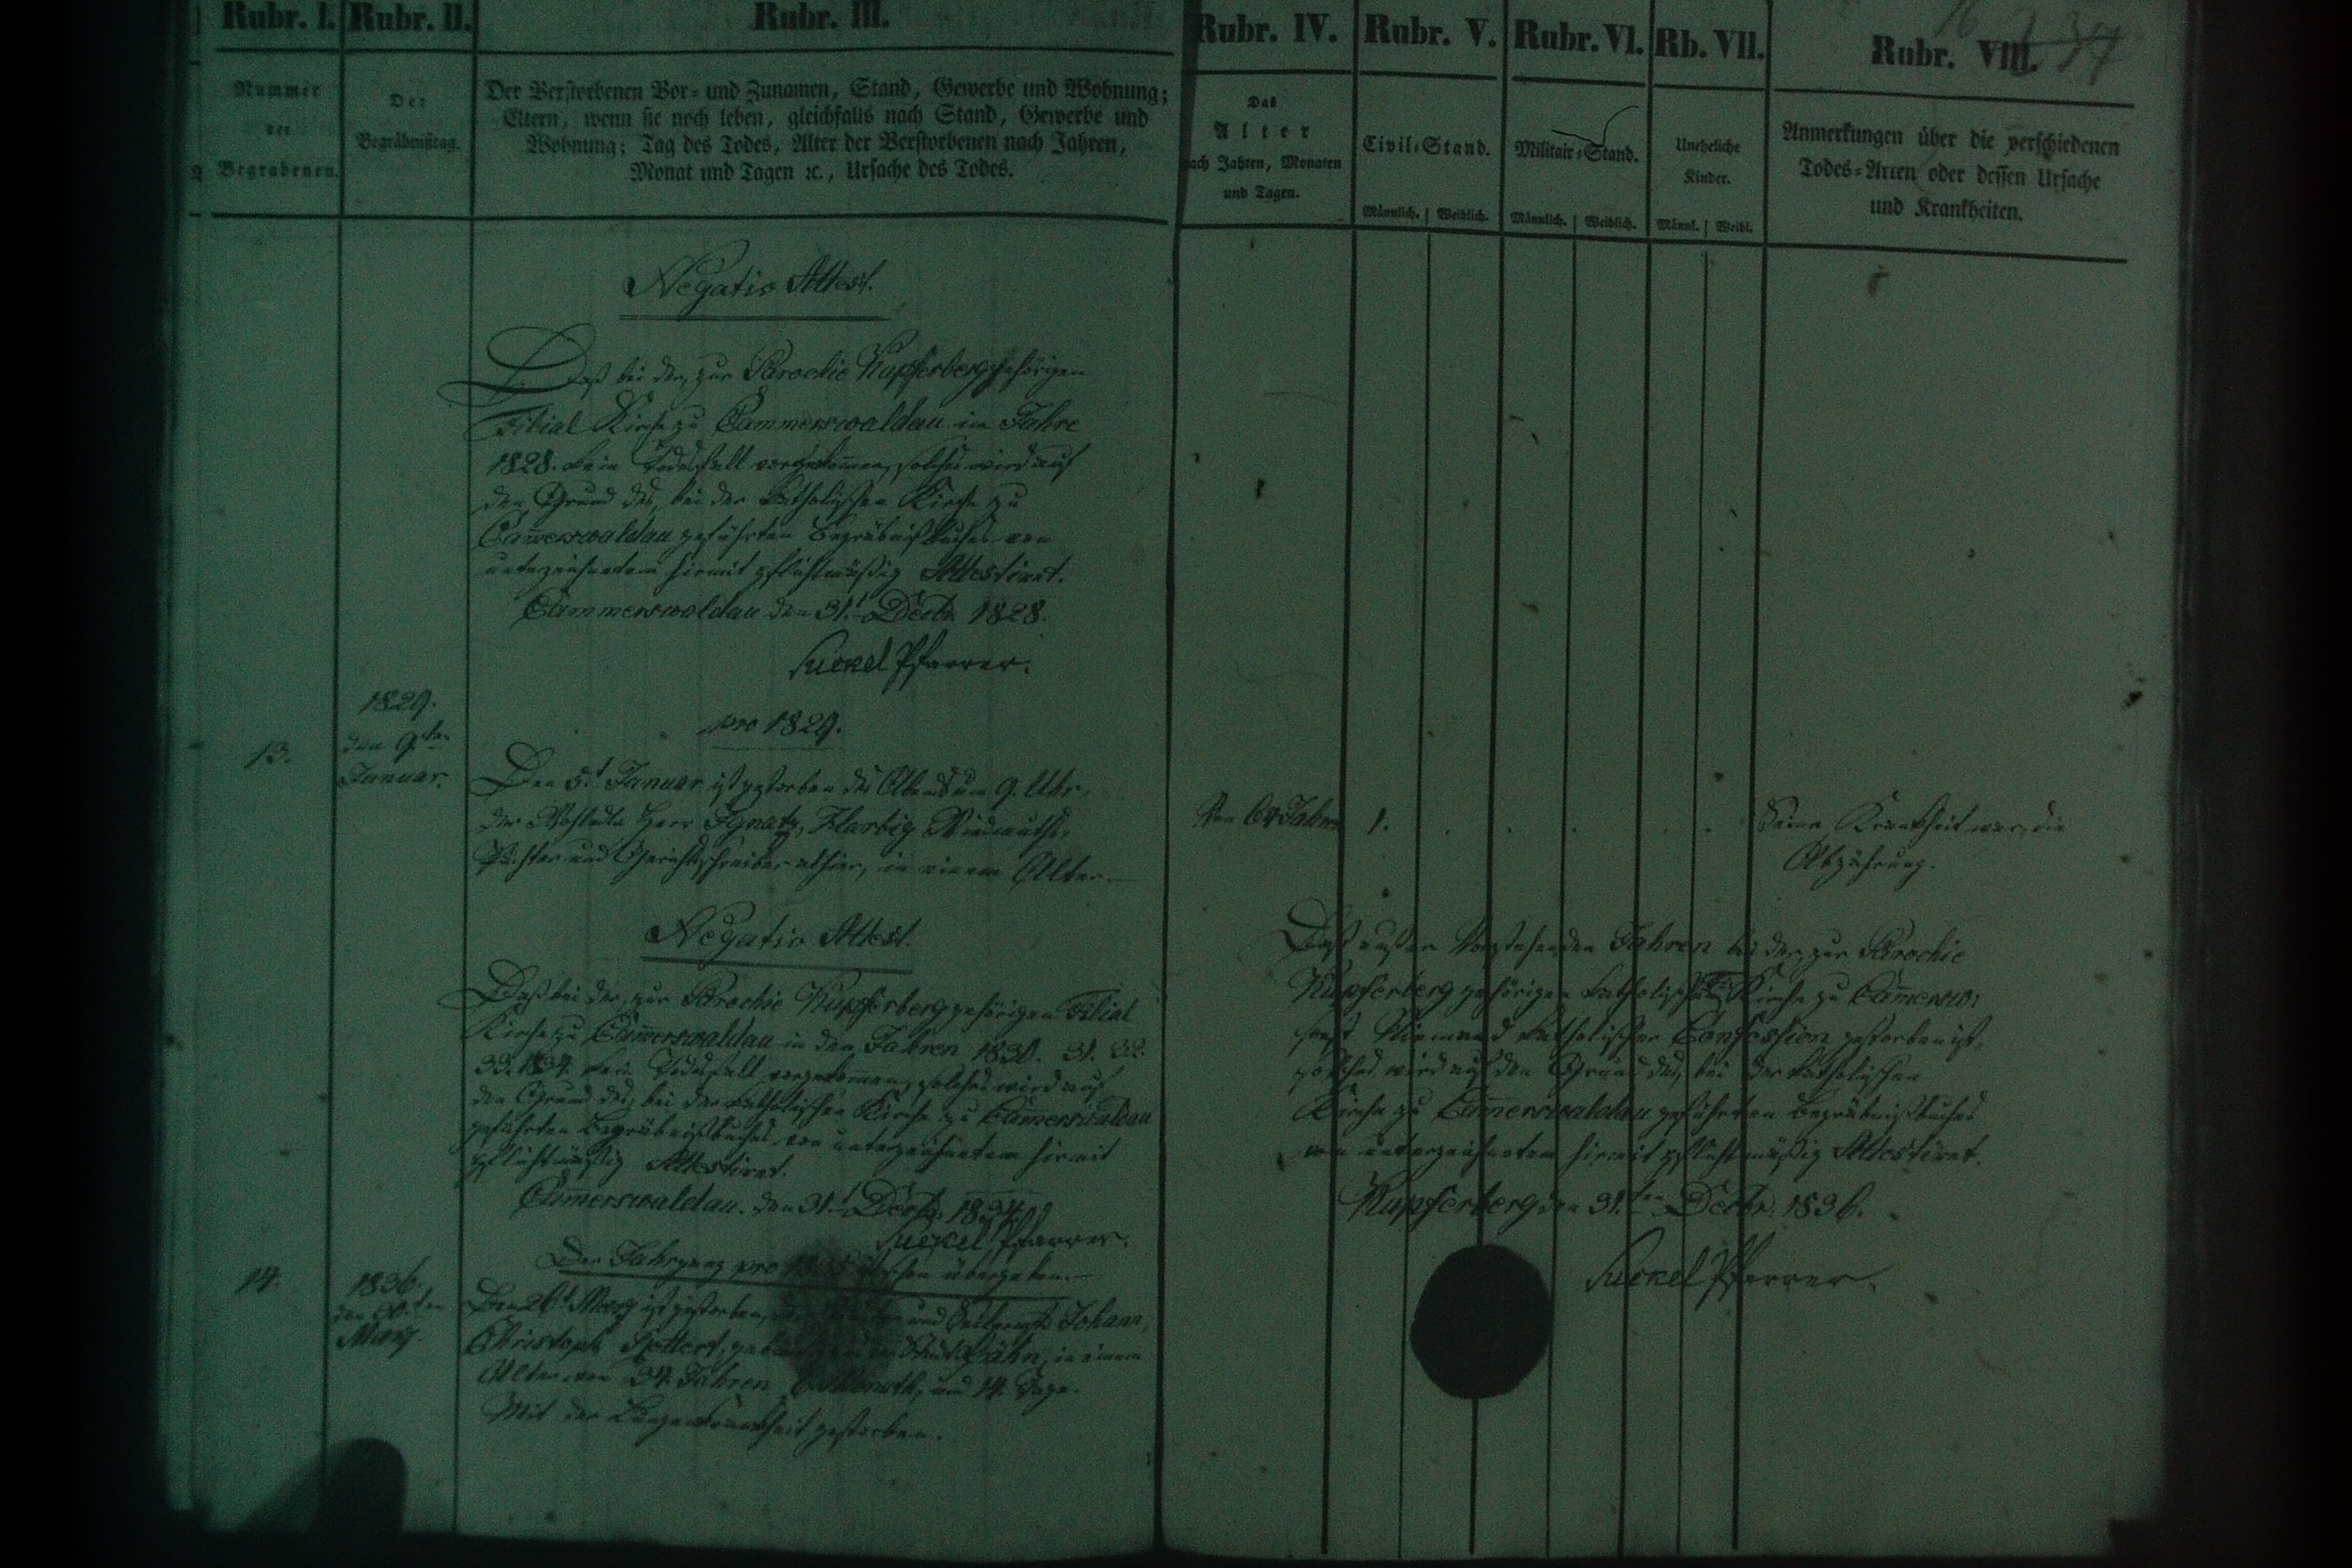 Rubr. I. Rubr. II. Rubr. III. Rubr. IV. Rubr. V. Rubr. VI. Rb. VII. Rubr. VIII.
Nummer
der
Begrabenen.
Der
Begräbnißtag.
Der Verstorbenen Vor- und Zunamen, Stand, Gewerbe und Wohnung;
Eltern, wenn sie noch leben, gleichfalls nach Stand, Gewerbe und
Wohnung; Tag des Todes, Alter der Verstorbenen nach Jahren,
Monat und Tagen ꝛc., Ursache des Todes.
Das
Alter
nach Jahren, Monaten
und Tagen.
Civil-Stand.
Männlich. | Weiblich.
Militair-Stand.
Männlich. | Weiblich.
Uneheliche
Kinder.
Männl. | Weibl.
Anmerkungen über die verschiedenen
Todes-Arten oder dessen Ursache
und Krankheiten.
Negativ Attest.
Daß bei der, zur Parochie Kupferberg gehörigen
Filial Kirche zu Cammerswaldau im Jahre
1828. kein Todesfall vorgekommen, solches wird auf
den Grund des, bei der katholischen Kirche zu
Cam̅erswaldau geführten Begräbnißbuches von
unterzeichnetem hiermit pflichtmäßig Attestiret.
Cammerswaldau den 31.t Decbr. 1828.
Suckel Pfarrer.
1829.
den 9ten
Januar.
13.
pro 1829.
Den 5.t Januar ist gestorben des Abends um 9. Uhr,
der Herr Ignatz, Harbig
Pächter und Gerichtsschreiber alhier, in einem Alter.
Von 64 Jahren
1.
Seine Krankheit war, die
Abzährung.
Negativ Attest.
Daß bei der, zur Parochie Kupferberg gehörigen Filial
Kirche zu Cam̅erswaldau in den Jahren 1830. 31. 32.
33. 1834. kein Todesfall vorgekommen, solches wird auf
den Grund des, bei der katholischen Kirche zu Cam̅erswaldau
geführten Begräbnißbuches von unterzeichnetem hiermit
pflichtmäßig Attestiret.
Cam̅erswaldau. den 31.t Decbr. 1834.
Suckel Pfarrer.
Der Jahrgang pro 1835 übergeben.
14.
1836.
den
März
Den 26t März ist gestorben, und Johann,
Christoph in einem
Alter von 34. Jahren 6. Monath, und 14. Tage.
Mit der Lungenkrankheit gestorben.
Daß außer Vorstehenden Jahren bei der, zur Parochie
Kupferberg gehörigen katholischen Kirche zu Cam̅ersw:
sonst Niemand katholischer Confession gestorben ist,
solches wird auf den Grund des, bei der katholischen
Kirche zu Cam̅erswaldau geführten Begräbnißbuches
von unterzeichnetem hiermit pflichtmäßig Attestiret.
Kupferberg den 31.ten Decbr. 1836.
Suckel Pfarrer.